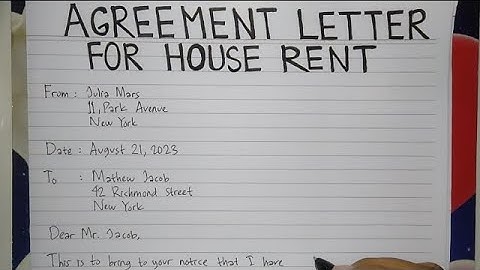 AGREEMENT LETTER
FOR HOUSE RENT
From : Julia Mars
11, Park Avenue
New York
Date : August 21, 2023
To : Mathew Jacob
42 Richmond Street
New York
Dear Mr. Jacob,
This is to bring to your notice that I have